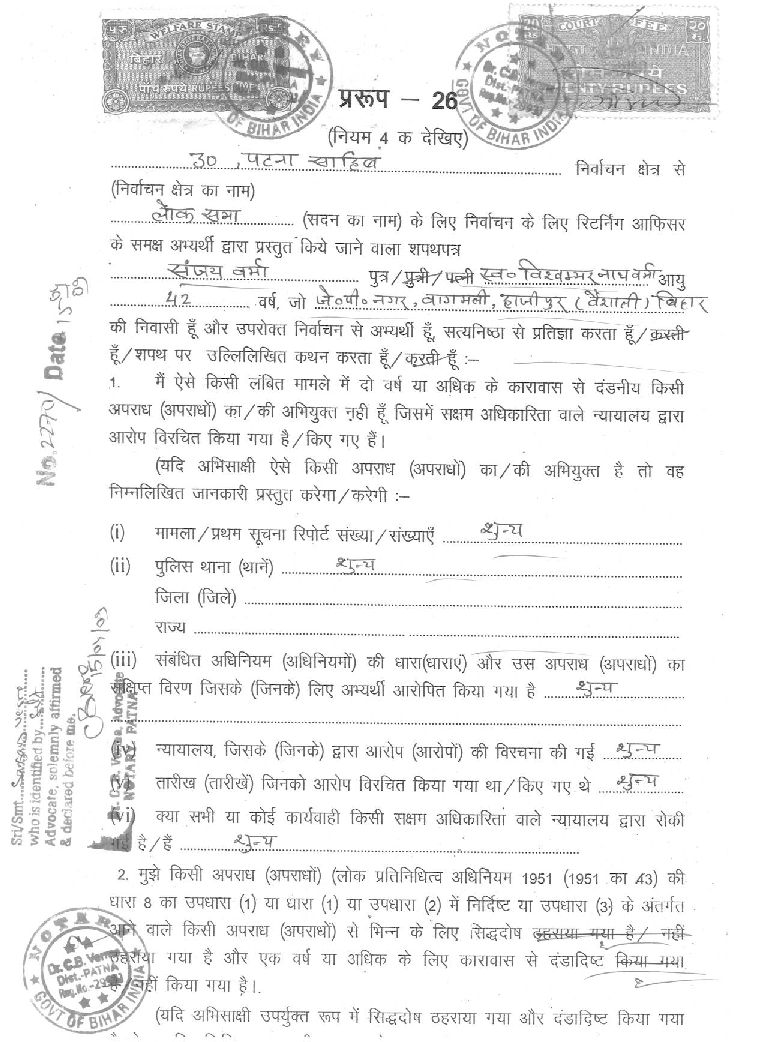 WELFARE STAMP
बिहार
BIHAR
पांच रूपये RUPEES
COURT FEE
INDIA
TWENTY RUPEES
NOTARY
Dr. C.B. Verma
Dist.-PATNA
GOVT OF BIHAR INDIA
प्ररूप – 26
(नियम 4 क देखिए)
30, पटना साहिब निर्वाचन क्षेत्र से
(निर्वाचन क्षेत्र का नाम)
लोक सभा (सदन का नाम) के लिए निर्वाचन के लिए रिटर्निंग आफिसर
के समक्ष अभ्यर्थी द्वारा प्रस्तुत किये जाने वाला शपथपत्र
संजय वर्मा पुत्र/पुत्री/पत्नी स्व० विश्वम्भर नाथ वर्मा आयु
42 वर्ष, जो जे०पी० नगर, बागमली, हाजीपुर (वैशाली) बिहार
की निवासी हूँ और उपरोक्त निर्वाचन से अभ्यर्थी हूँ, सत्यनिष्ठा से प्रतिज्ञा करता हूँ/करती
हूँ/शपथ पर उल्लिलिखित कथन करता हूँ/करती हूँ :–
1. मैं ऐसे किसी लंबित मामले में दो वर्ष या अधिक के कारावास से दंडनीय किसी
अपराध (अपराधों) का/की अभियुक्त नहीं हूँ, जिसमें सक्षम अधिकारिता वाले न्यायालय द्वारा
आरोप विरचित किया गया है/किए गए हैं।
(यदि अभिसाक्षी ऐसे किसी अपराध (अपराधो) का/की अभियुक्त है तो वह
निम्नलिखित जानकारी प्रस्तुत करेगा/करेगी :–
(i) मामला/प्रथम सूचना रिपोर्ट संख्या/संख्याएँ शुन्य
(ii) पुलिस थाना (थानें) शुन्य
जिला (जिले)
राज्य
(iii) संबंधित अधिनियम (अधिनियमों) की धारा(धाराएं) और उस अपराध (अपराधों) का
संक्षिप्त विरण जिसके (जिनके) लिए अभ्यर्थी आरोपित किया गया है शुन्य
(iv) न्यायालय, जिसके (जिनके) द्वारा आरोप (आरोपों) की विरचना की गई शुन्य
(v) तारीख (तारीखें) जिनको आरोप विरचित किया गया था/किए गए थे शुन्य
(vi) क्या सभी या कोई कार्यवाही किसी सक्षम अधिकारिता वाले न्यायालय द्वारा रोकी
गई है/हैं शुन्य
2. मुझे किसी अपराध (अपराधों) (लोक प्रतिनिधित्व अधिनियम 1951 (1951 का 43) की
धारा 8 का उपधारा (1) या धारा (1) या उपधारा (2) में निर्दिष्ट या उपधारा (3) के अंतर्गत
आने वाले किसी अपराध (अपराधों) से भिन्न के लिए सिद्धदोष ठहराया गया है/ नहीं
ठहराया गया है और एक वर्ष या अधिक के लिए कारावास से दंडादिष्ट किया गया
है/नहीं किया गया है।
(यदि अभिसाक्षी उपर्युक्त रूप में सिद्धदोष ठहराया गया और दंडादिष्ट किया गया
No. 2270/ Date
15/04/09
Sri/Smt.
who is identified by
Advocate, solemnly affirmed
& declared before me.
Dr. C.B. Verma, Advocate
NOTARY, PATNA
NOTARY
Dr. C.B. Verma
Dist.-PATNA
GOVT OF BIHAR